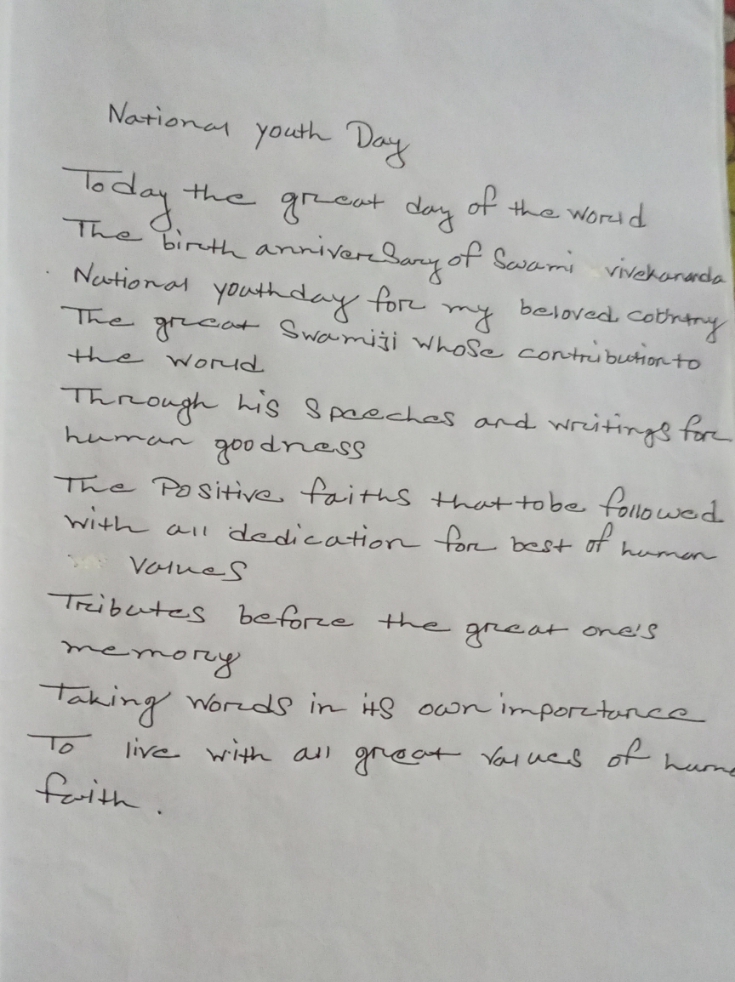 National youth Day
Today the great day of the world
The birth anniversary of Swami vivekananda
National youthday for my beloved country
The great Swamiji whose contribution to
the world
Through his speeches and writings for
human goodness
The Positive faiths that to be followed
with all dedication for best of human
values
Tributes before the great one's
memory
Taking words in its own importance
To live with all great values of huma
faith.